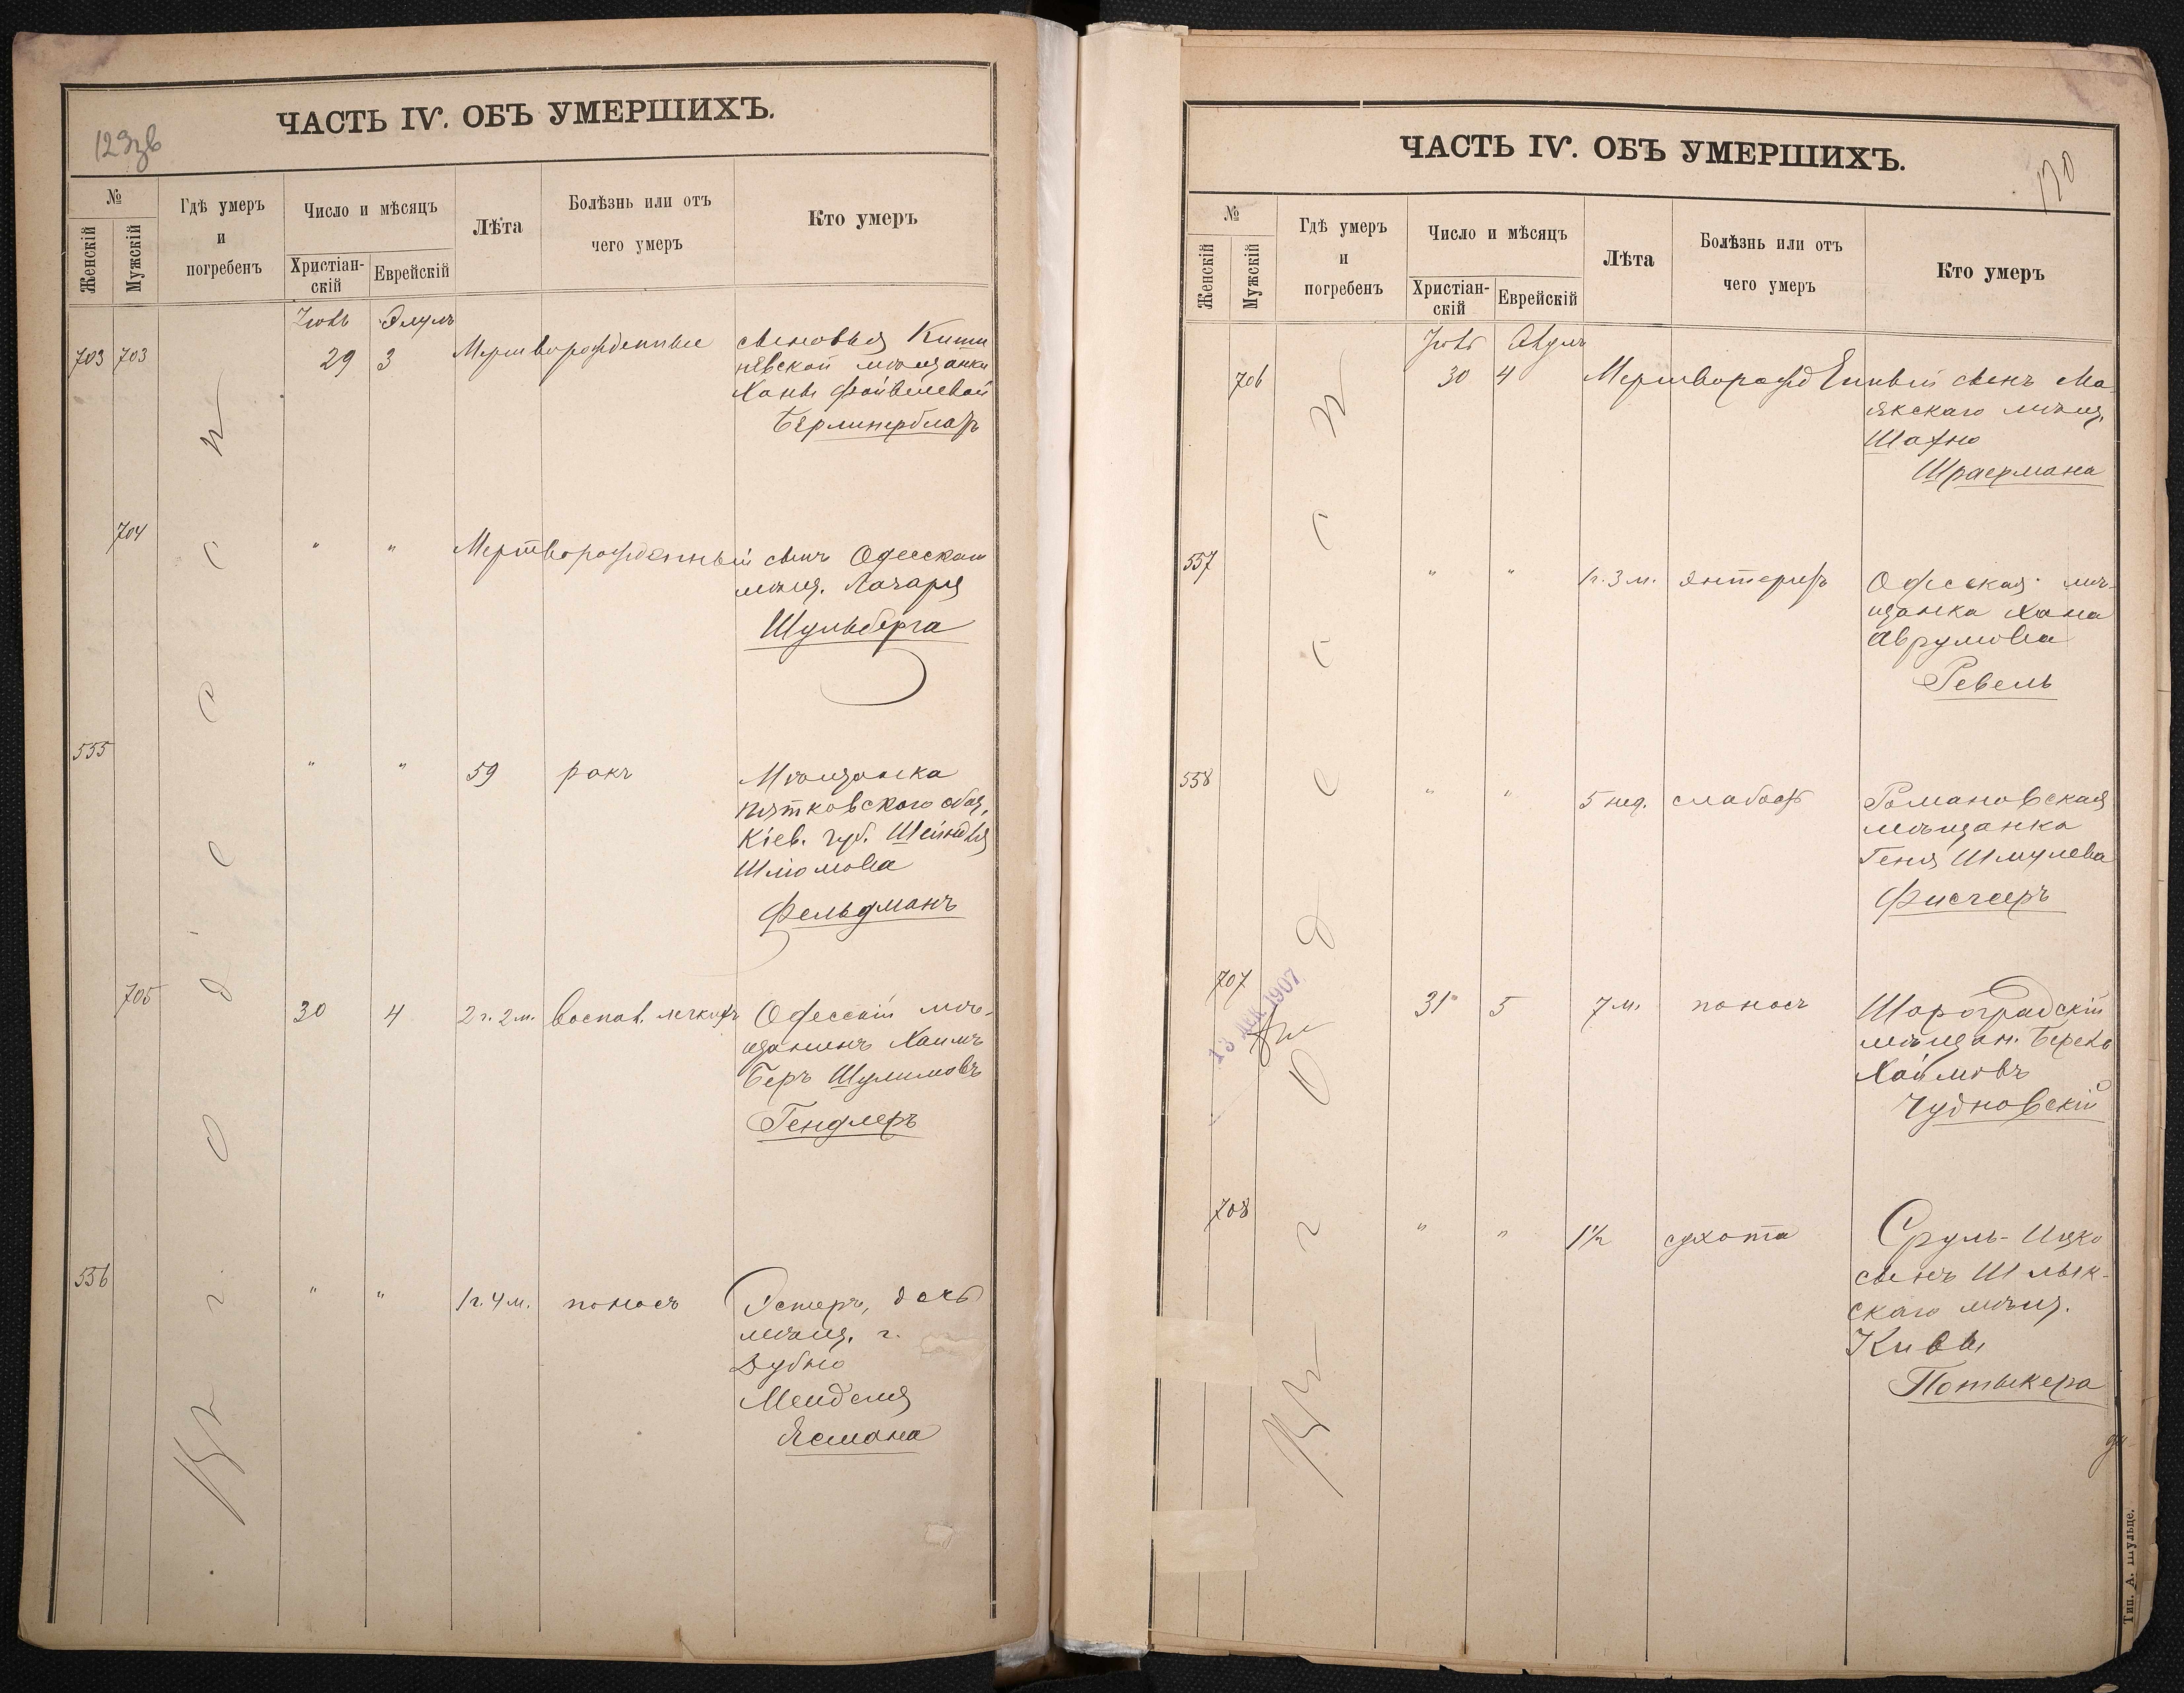 ЧАСТЬ IV. ОБЪ УМЕРШИХЪ.
№
Женскій
Мужскій
Гдѣ умеръ
и
погребенъ
Число и мѣсяцъ
Христіан-
скій
Еврейскій
Лѣта
Болѣзнь или отъ
чего умеръ
Кто умеръ
Элулъ
703 703
29 3 Мертворожденные сыновья Киши
невской мѣщанки
Ханы Файвелевой
704
" " Мертворожденный сынъ Одесскаго
мѣщ. Лазаря
Шульберга
555
" " 59 ракъ Мѣщанка
Пятковского общ.
Кіев. губ. Шейндля
Шліомова
Фельдманъ
705
30 4 2 г. 2 м. воспал. легкихъ Одесскій мѣ-
щанинъ Хаимъ
Беръ Шулимовъ
Гендлеръ
556
" " 1 г. 4 м. поносъ Эстеръ, дочь
мѣщ. г.
Дубно
Менделя
Ясмана
ЧАСТЬ IV. ОБЪ УМЕРШИХЪ.
№
Женскій
Мужскій
Гдѣ умеръ
и
погребенъ
Число и мѣсяцъ
Христіан-
скій
Еврейскій
Лѣта
Болѣзнь или отъ
чего умеръ
Кто умеръ
706
30 4 Мертворожденный сынъ Ма
якскаго мѣщ.
Шахно
557
" " 1 г. 3 м. энтеритъ Одесская мѣ-
щанка Хана
Аврумова
Ревель
558
" " 5 нед. слабость Романовская
мѣщанка
Геня Шмулева
Фисчеръ
707
31 5 7 м. поносъ Шароградскій
мѣщан. Берко
Хаимовъ
Чудновскій
13 ДЕК. 1907
708
" " 1½ сухота Сруль-Ицко
сынъ Шлык-
скаго мѣщ.
Кивы
Потыкера
Тип. А. Шульце.